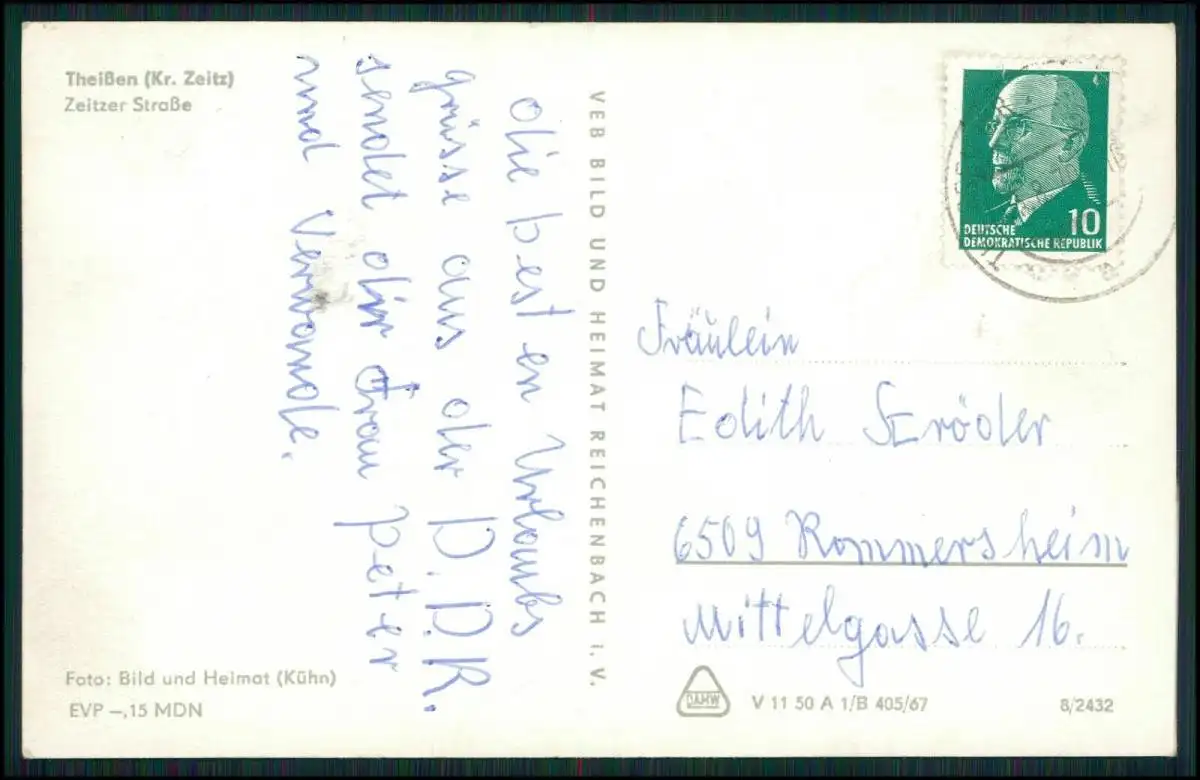 Theißen (Kr. Zeitz)
Zeitzer Straße
die besten Urlaubs
grüsse aus der D.D.R.
sendet dir Frau Peter
und Verwande.
VEB BILD UND HEIMAT REICHENBACH I. V.
10
DEUTSCHE
DEMOKRATISCHE REPUBLIK
Fräulein
Edith Scröder
6509 Rommersheim
Mittelgasse 16.
Foto: Bild und Heimat (Kühn)
EVP –,15 MDN
DAMW
V 11 50 A 1/B 405/67
8/2432